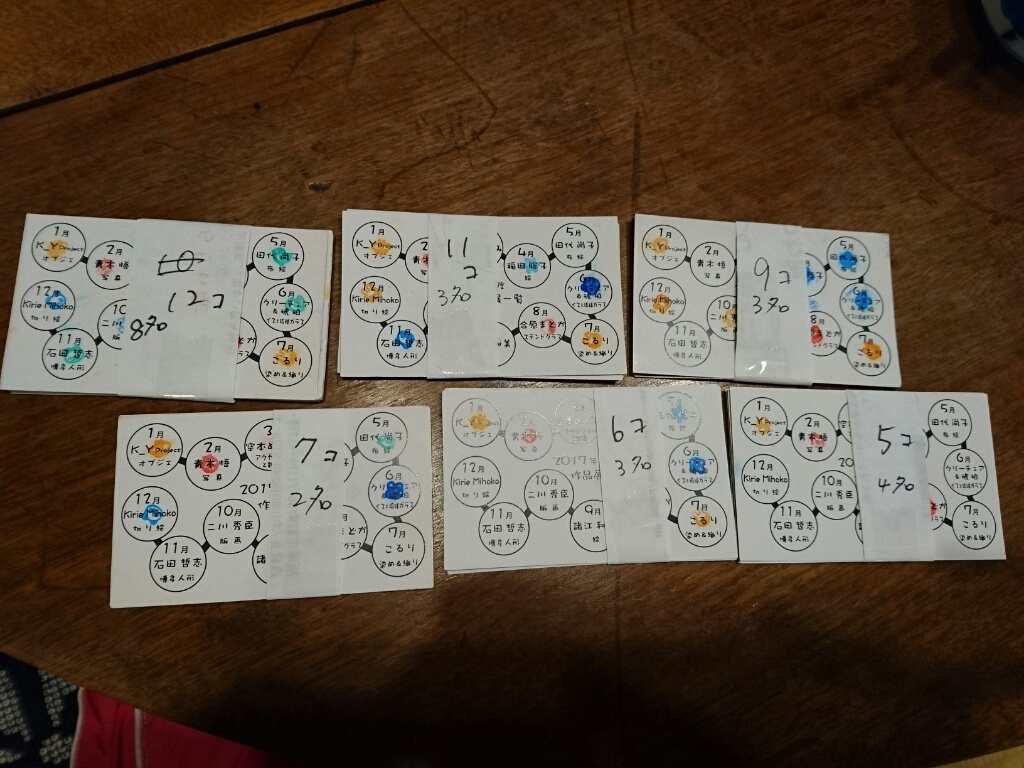 1月
K_Y Project
オブジェ
2月
青木悟
写真
12月
Kirie Mihoko
切り絵
10
二川
11月
石田哲志
博多人形
12コ
8名
5月
田代尚子
布絵
6月
クリーチェア
&琥珀
7月
こるり
染め&織り
1月
K_Y Project
オブジェ
12月
Kirie Mihoko
切り絵
11月
石田哲志
博多人形
11
コ
3名
4月
稲田聡子
絵
一覧
8月
合原まどか
ステンドグラス
5月
田代尚子
布絵
6月
クリーチェア
&琥珀
7月
こるり
染め&織り
1月
K_Y Project
オブジェ
2月
青木悟
写真
12月
Kirie Mihoko
切り絵
10月
二川
11月
石田哲志
博多人形
9コ
3名
5月
田代尚子
布絵
6月
クリーチェア
&琥珀
8月
7月
こるり
染め&織り
1月
K_Y Project
オブジェ
2月
青木悟
写真
12月
Kirie Mihoko
切り絵
10月
二川秀臣
版画
11月
石田哲志
博多人形
諸
7コ
2名
5月
田代尚子
布絵
6月
クリーチェア
&琥珀
7月
こるり
染め&織り
1月
オブジェ
2月
写真
2017年
作品展
12月
Kirie Mihoko
切り絵
10月
二川秀臣
版画
11月
石田哲志
博多人形
9月
諸江和
6コ
3名
6月
クリーチェア
7月
こるり
染め&織り
1月
K_Y Project
オブジェ
2月
青木悟
写真
20
12月
Kirie Mihoko
切り絵
10月
二川秀臣
版画
11月
石田哲志
博多人形
5コ
4名
5月
田代尚子
布絵
6月
クリーチェア
&琥珀
7月
こるり
染め&織り